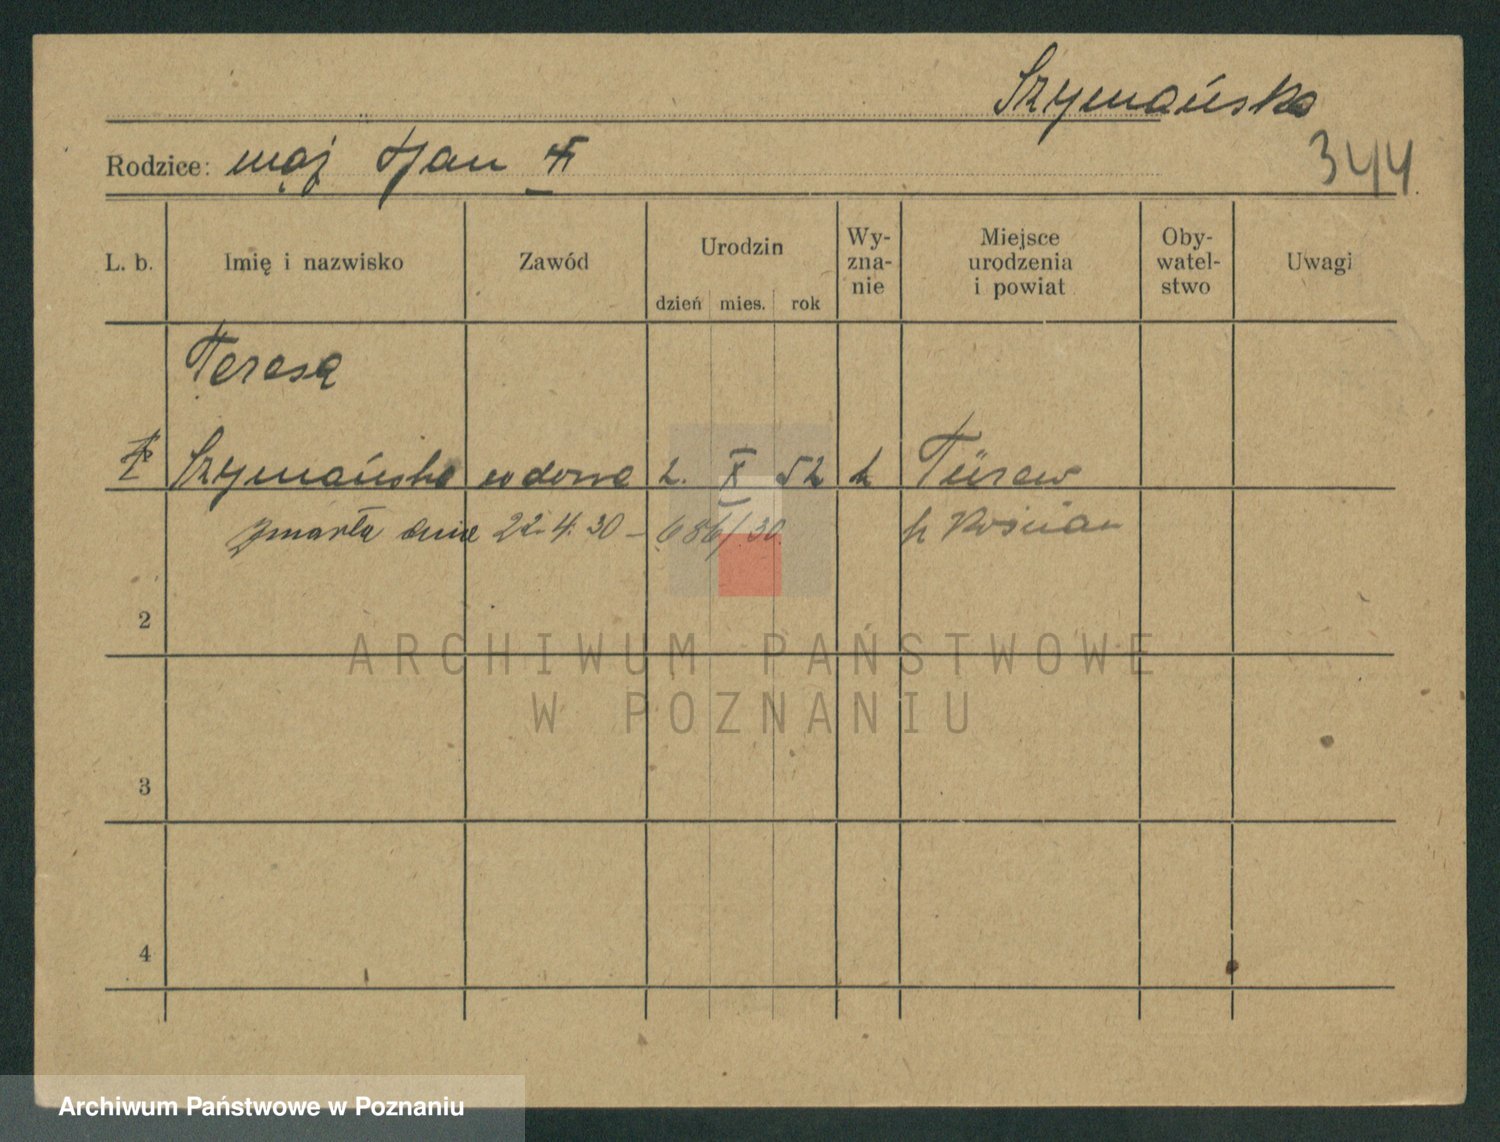 Szymańska
Rodzice: mąż Jan
344
L. b. Imię i nazwisko Zawód Urodzin dzień mies. rok Wy-zna-nie Miejsce urodzenia i powiat Oby-watel-stwo Uwagi
Teresa
Szymańska wdowa 2. X 52 k Turew
zmarła dnia 22.4.30 – 686/30 p Kościan
2
ARCHIWUM PAŃSTWOWE
W POZNANIU
3
4
Archiwum Państwowe w Poznaniu